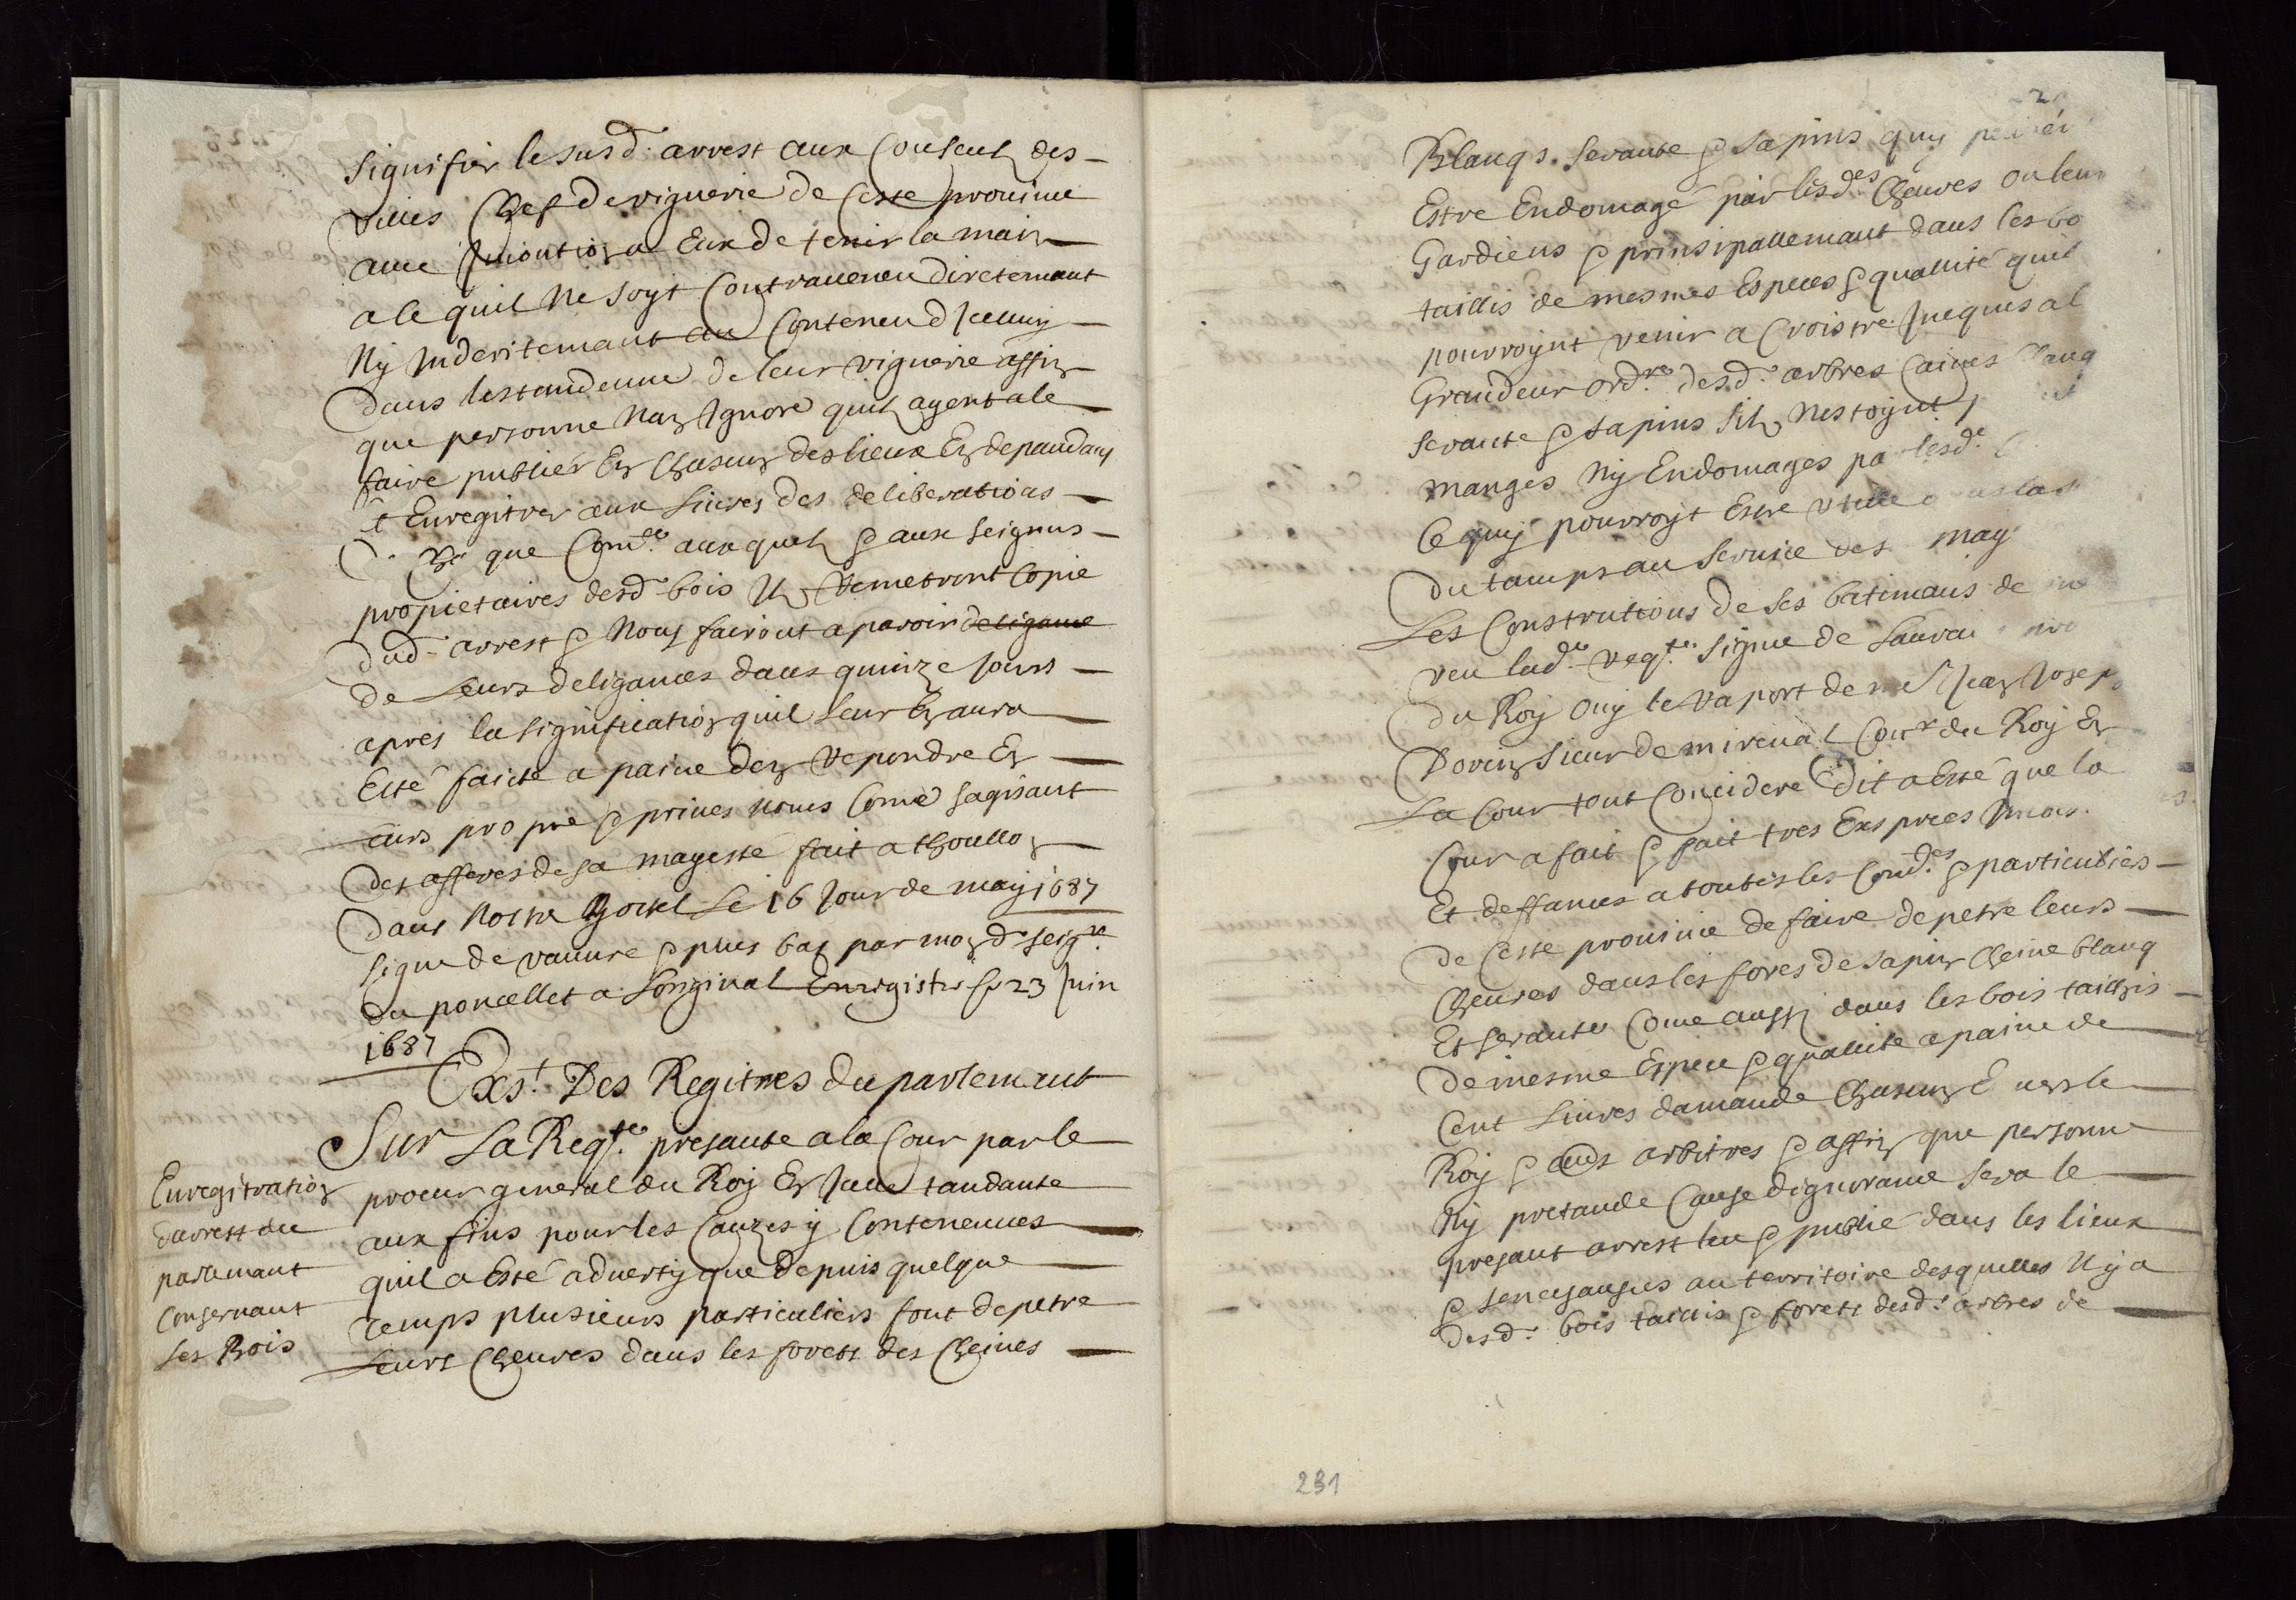 signifier le susd. arrest aux Conseulz des
villes Chef de viguerie de Ceste province
avec Jnionction a Eux de tenir la main
a le quil ne soyt Contraveneu diretemant
Ny Jnderitemant au Conteneu dJcelluy
Dans lestandeue de leur viguerie affin
que personne Nan Jgnore quilz ayent a le
faire publier En Chascun des lieux En depandans
Et Enregitrer aux livres des deliberations
que Comd.es auxquelz & aux seigneurs
propietaires desd. bois Ilz Remetront Copie
Dud. arrest & Nous fairont aparoir deligance
de Leurs deligances dans quinze Jours
apres la signification quil leur En aura
Esté faicte a paine den Repondre En
leurs propre & prives noms Come sagisant
Des afferes de sa magesté fait a Thoullon
Dans Nostre Hostel Le 16 Jour de may 1687
signe de vauvre & plus bas par mond. seigr.
Du poncellet a Loriginal Enregistre le 23 Juin
1687
Exst. Des Regitres du parlemant
Sur La Reqte. presante a la Cour par le
Enregitration
d'arrest du
parlemant
Consernant
Les Bois
procur general du Roy En Jcelle tandante
aux fins pour les Cauzes y Contenenues
quil a Esté adverty que depuis quelque
temps plusieurs particuliers font depetre
Leurs Chevres dans les forets des Cheines
Blanqs. Sevante & Sapins quy
Estre Endomagé par lesd.es Chevres ou leur
Gardiens & prinsipallemant dans les bo
taillis de mesmes Especes & quallité quil
pourroynt venir a Croistre Jucques a l
Grandeur ordre. desd. arbres Caines blanq
sevante & sapins silz Nestoynt
manges Ny Endomages par lesd.
Ce quy pourroyt Estre utille
Du tamps au service des may
Les Constrútions de ses batimans de
veu lad. reqte. signe de Laurai
Du Roy Ouy le Raport de Jean Josep
Dorin Sieur de mirevail Conr du Roy En
La Cour tout Conciderè Dit a Esté que la
Cour a fait & fait tres Expres
Et deffances a toutes les Comd.es & particuliers
De Ceste province de faire depetre leurs
Chevres dans les fores de sapin Cheine blanq
Et sevante Come aussy dans les bois taillis
De mesme Espece & quallite a paine de
Cent Livres damande Chascun Envers le
Roy & arbitres & affin que personne
Ny pretande Cause dignorance sera le
presant arrest leu & publié dans les lieux
& au territoire desquelles Il y a
desd. bois taillis & forets desd. arbres de
231